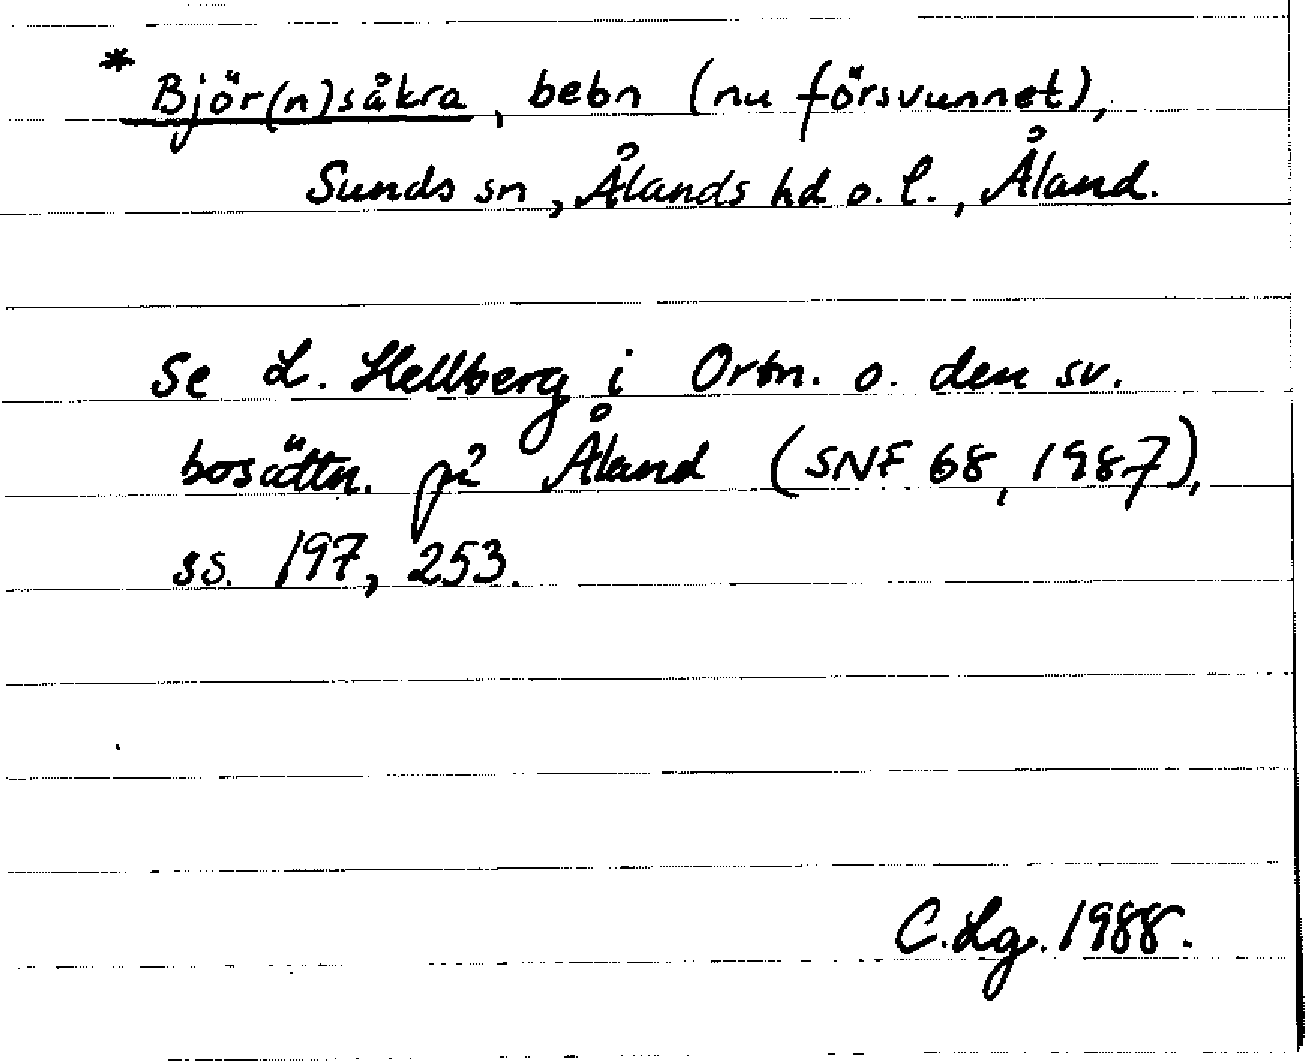 * Björ(n)såkra, bebn (nu försvunnet),
Sunds sn, Ålands hd o. l., Åland.
Se L. Hellberg i Ortn. o. den sv.
bosättn. på Åland (SNF 68, 1987),
ss. 197, 253.
C. Lg. 1988.